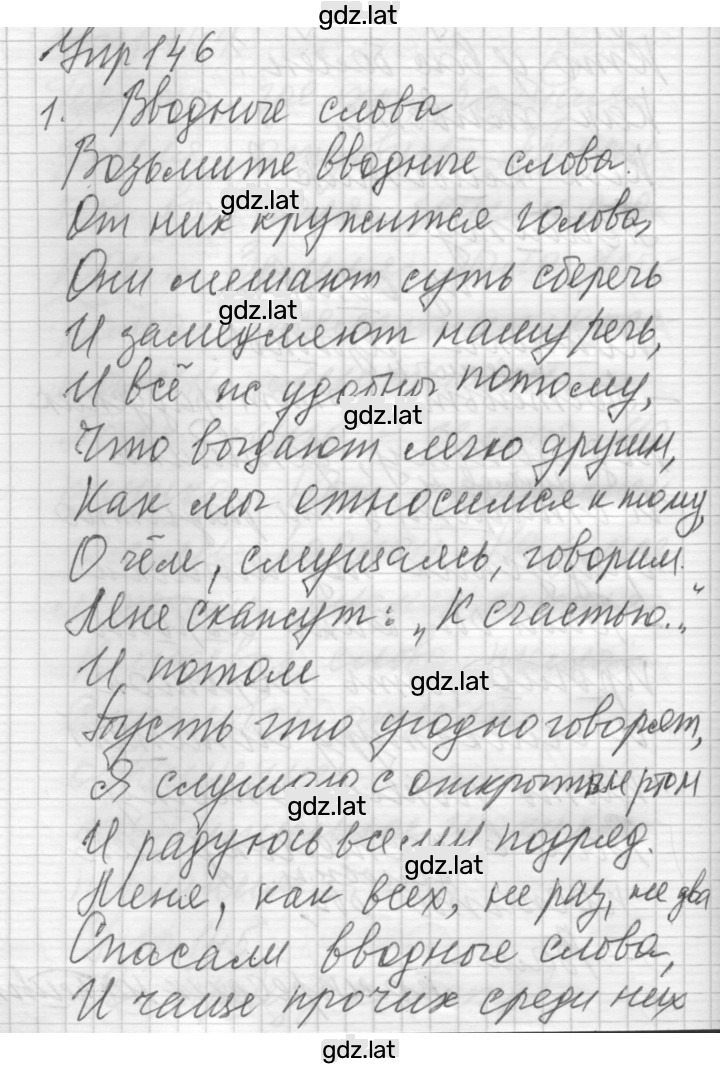 gdz.lat
Упр 146
1. Вводные слова
Возьмите вводные слова.
gdz.lat
От них кружится голова,
Они мешают суть сберечь
gdz.lat
И замедляют нашу речь,
И всё ж удобны потому,
gdz.lat
Что выдают легко другим,
Как мы относимся к тому,
О чём, смущаясь, говорим.
Мне скажут: „К счастью..“
И потом
gdz.lat
Пусть что угодно говорят,
Я слушаю с открытым ртом
gdz.lat
И радуюсь всему подряд.
gdz.lat
Меня, как всех, не раз, не два
Спасали вводные слова,
И чаще прочих среди них
gdz.lat